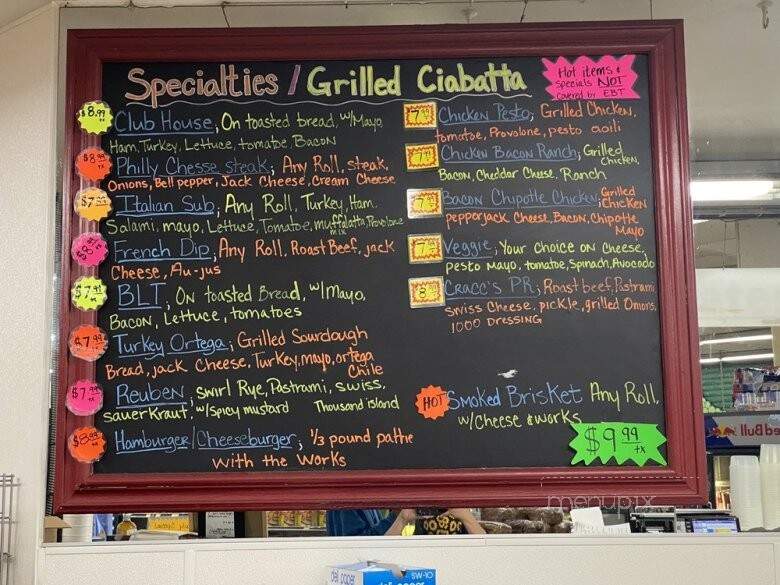 Specialties / Grilled Ciabatta
Hot items &
Specials NOT
covered by EBT
$8.99
Club House, On toasted bread, w/Mayo
Ham, Turkey, Lettuce, tomatoe, Bacon
Philly Chesse steak; Any Roll, steak,
Onions, Bell pepper, Jack Cheese, Cream Cheese
Italian Sub; Any Roll, Turkey, Ham
Salami, mayo, Lettuce, Tomatoe, muffalatta mix, Provolone
French Dip; Any Roll, Roast Beef, jack
Cheese, Au-jus
BLT, On toasted Bread, w/Mayo,
Bacon, Lettuce, tomatoes
$7.99
Turkey Ortega; Grilled Sourdough
Bread, jack Cheese, Turkey, mayo, ortega
Chile
$7.99
Reuben; swirl Rye, Pastrami, swiss,
sauerkraut, w/spicy mustard Thousand island
$8.99
Hamburger/Cheeseburger; 1/3 pound pattie
with the Works
Chicken Pesto; Grilled Chicken,
tomatoe, Provolone, pesto aoili
Chicken Bacon Ranch; Grilled
Chicken,
Bacon, Cheddar Cheese, Ranch
Bacon Chipotle Chicken; Grilled
Chicken
pepperjack Cheese, Bacon, Chipotle
Mayo
Veggie; Your choice on Cheese,
pesto mayo, tomatoe, Spinach, Avocado
Cracc's PR; Roast beef, Pastrami
swiss Cheese, pickle, grilled Onions,
1000 Dressing
HOT
Smoked Brisket Any Roll,
w/Cheese & works
$9.99
+x
menupix
Red Bull